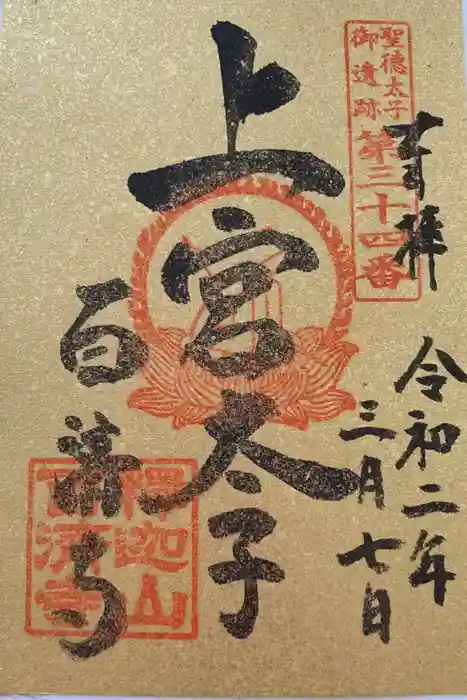 聖徳太子
御遺跡
第三十四番
奉拝
令和二年
三月七日
上宮太子
百済寺
釈迦山
百済寺